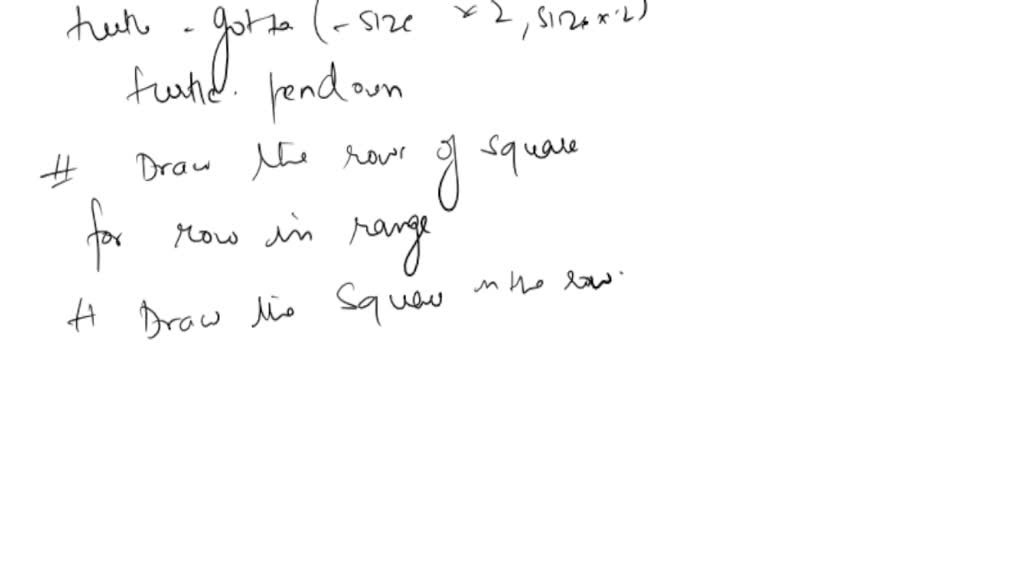 turtle . goto (- size * 2, size * 2)
turtle. pendown
# Draw the row of square
for row in range
# Draw the Square in the row.